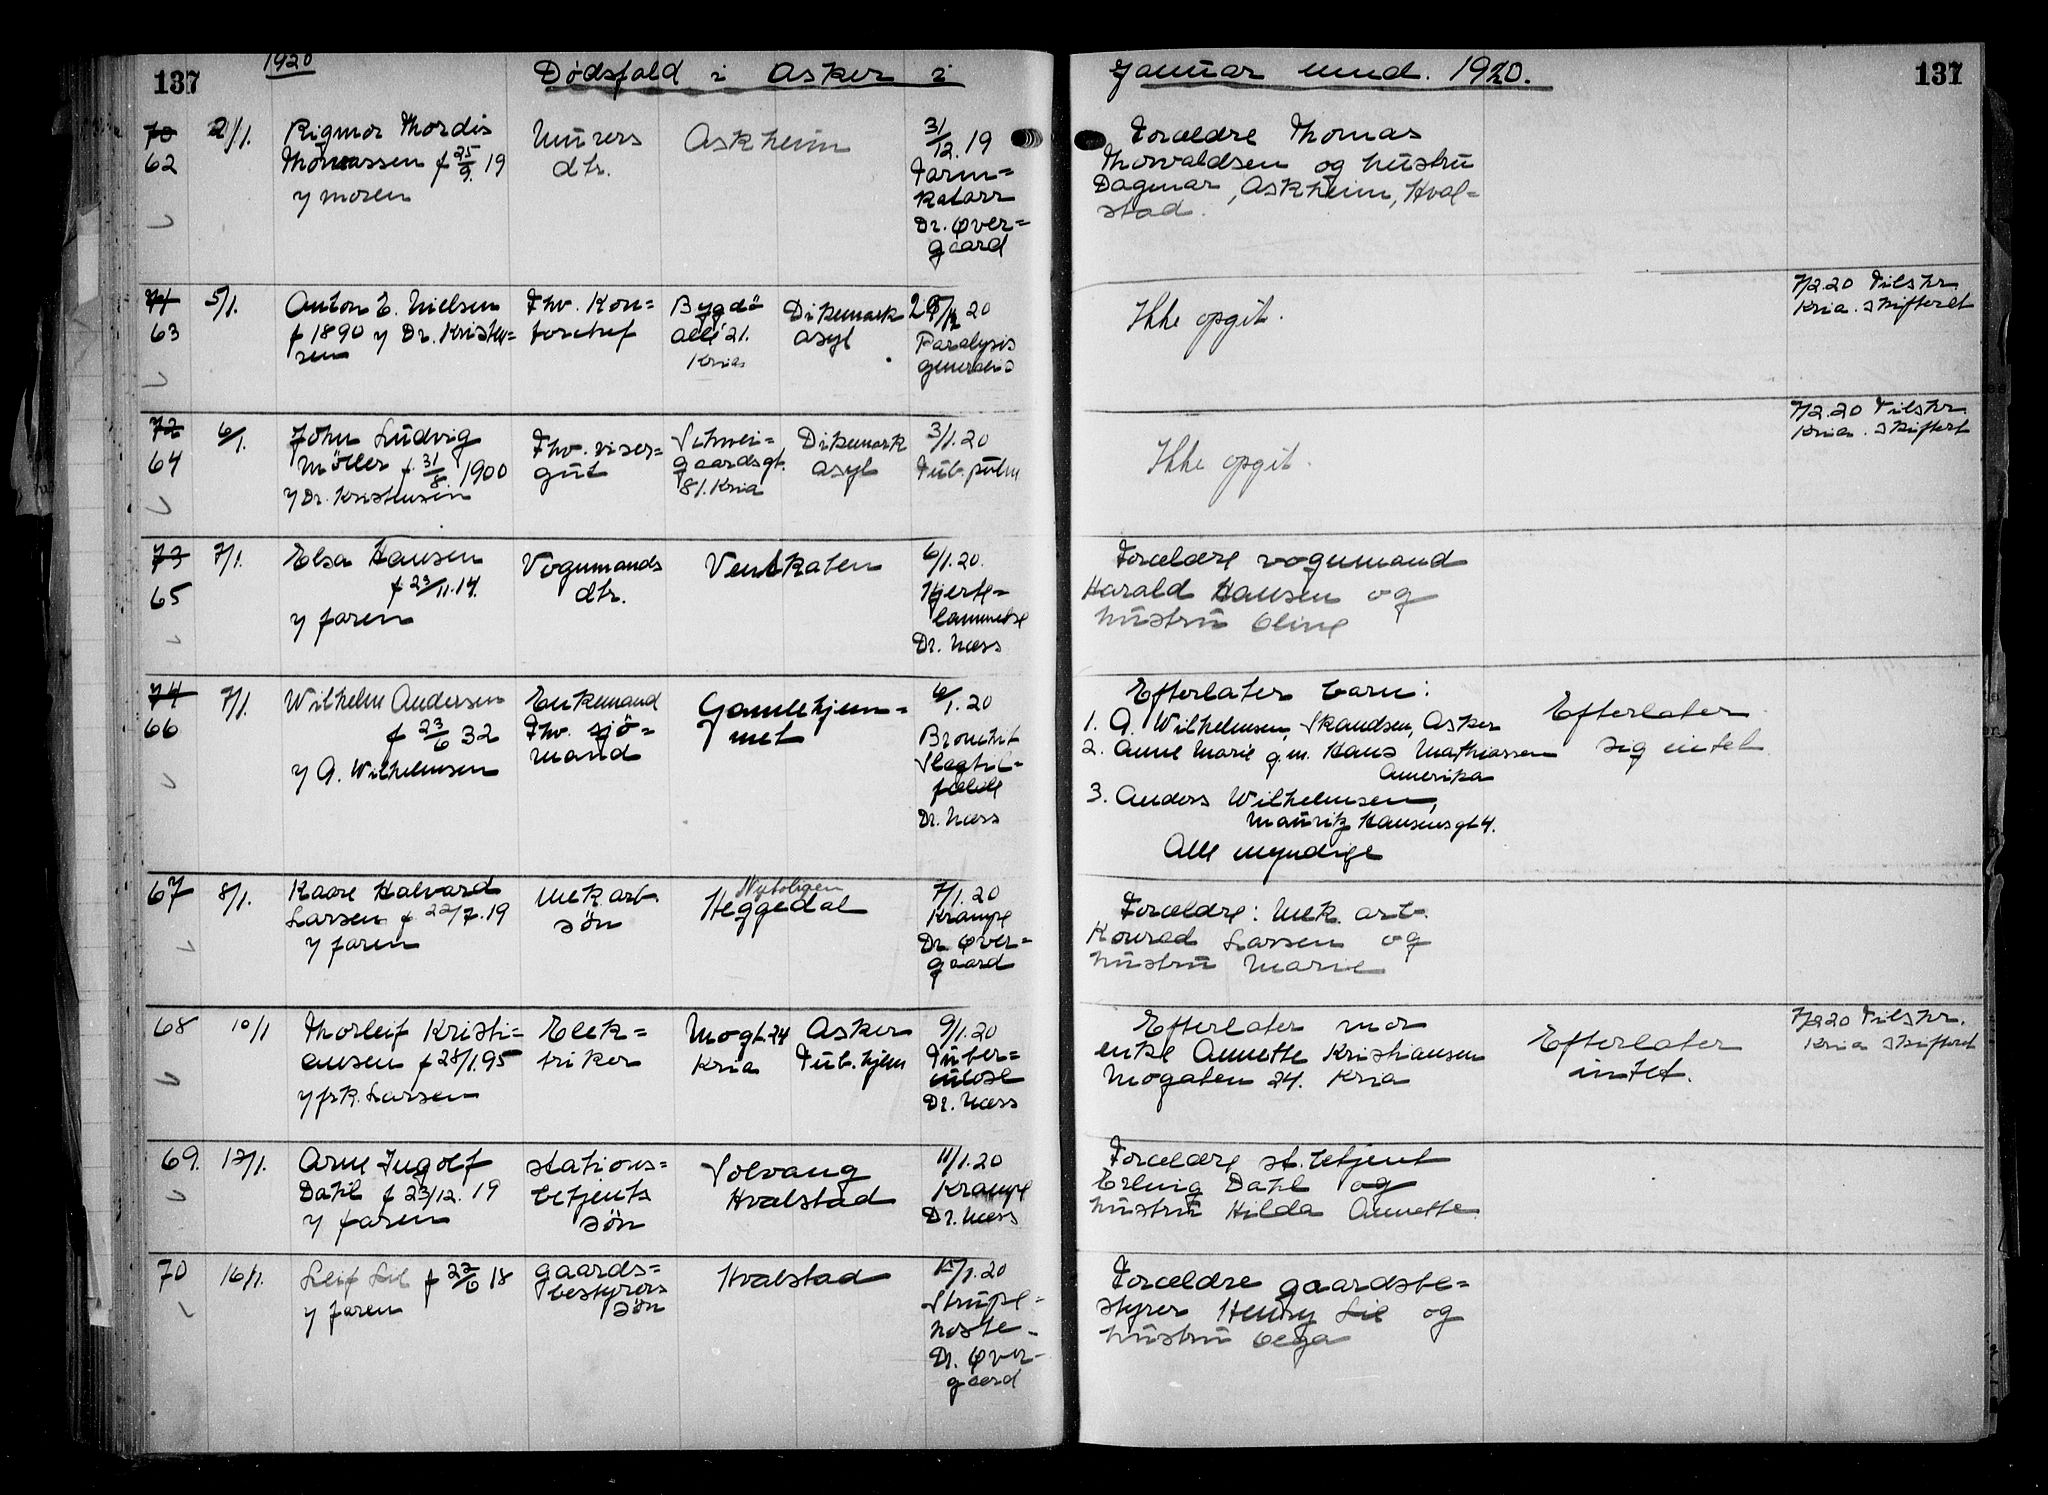 137
1920
Dødsfald i Asker i
Januar mnd. 1920.
137
70 2/1. Rigmor Thordis Murers Askheim 31/12.19 Forældre Thomas
62 Thomassen f 25/9.19 dtr. Tarm= Thorvaldsen og hustru
y moren katarr Dagmar, Askheim, Hval=
Dr. Øver= stad.
gaard
71 5/1. Anton E. Nielsen Fhv. Kon= Bygdö Dikemark 20 Ikke opgit. 7/2.20 Tilskr.
63 f 1890 y Dr. Kristen= torchef allé 21. asyl Paralysis Kria. skifteret
sen Kria generalis
72 6/1. John Ludvig Fhv. viser= Schwei= Dikemark 3/1.20 Ikke opgit. 7/2.20 Tilskr.
64 Möller f. 31/8.1900 gut gaardsgt. asyl Tub. pulm Kria. skifteret
y Dr. Kristensen 81. Kria
73 7/1. Elsa Hansen Vognmands Venskaten 6/1.20. Forældre vognmand
65 f 23/11.14. dtr. Hjerte= Harald Hansen og
y faren lammelse hustru Oline
Dr. Næss
74 7/1. Wilhelm Andersen Enkemand Gamlehjem= 6/1.20 Efterlater barn:
66 f 23/6 32 Fhv. sjö= met Bronchit 1. A. Wilhelmsen, Skaudsen, Asker Efterlater
y A. Wilhelmsen mand Slagtil= 2. Anne Marie g.m. Hans Mathiassen sig intet
fælde Amerika
Dr. Næss 3. Anders Wilhelmsen,
Mauritz Hansensgt 4.
Alle myndige
67 8/1. Kaare Halvard Mek arb Nyboligen 7/1.20 Forældre: Mek. arb.
Larsen f 22/7.19 sön Heggedal Krampe Konrad Larsen og
y faren Dr. Øver= hustru Marie
gaard
68 10/1 Thorleif Kristi= Elek= Mogt. 24 Asker 9/1.20 Efterlater mor 7/2.20 Tilskr.
ansen f 28/1.95 triker Kria Tub. hjem Tuber= enke Annette Kristiansen Efterlater Kria skifteret
y frk. Larsen culose Mogaten 24. Kria intet.
Dr. Næss
69. 12/1. Arne Ingolf stations= Solvang 11/1.20 Forældre st. betjent
Dahl f 23/12.19 betjents Hvalstad Krampe Erling Dahl og
y faren sön Dr. Næss hustru Hilda Annette
70 16/1. Leif Lie f 22/6 18 gaards= Hvalstad 15/1.20 Forældre gaardsbe=
y faren bestyrers Strupe= styrer Henry Lie og
sön hoste. hustru Olga
Dr. Øver=
gaard